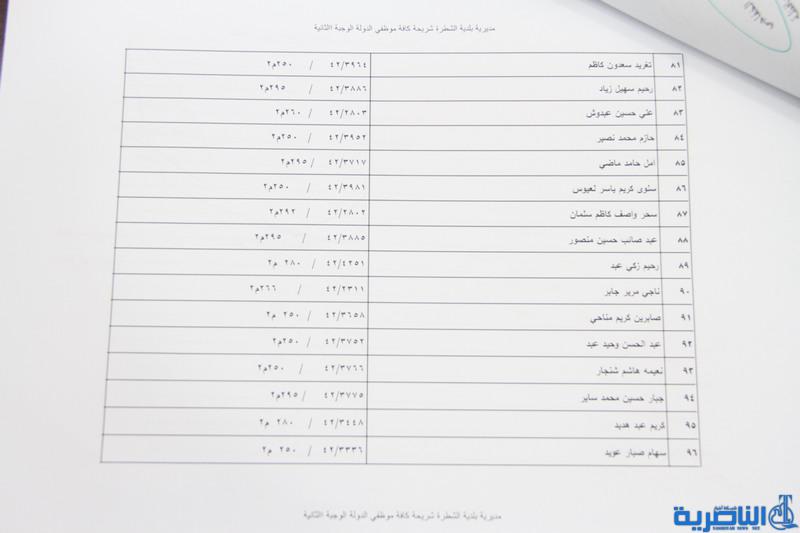 مديرية بلدية الشطرة شريحة كافة موظفي الدولة الوجبة الثانية
٨١ تغريد سعدون كاظم ٤٢/٣٩٦٤ / ٢٥٠م٢
٨٢ رحيم سهيل زياد ٤٢/٣٨٨٦ / ٢٩٥م٢
٨٣ علي حسين عيدوش ٤٢/٢٨٠٣ / ٢٦٠م٢
٨٤ حازم محمد نصير ٤٢/٣٩٥٢ / ٢٥٠م٢
٨٥ امل حامد ماضي ٤٢/٣٧١٧ / ٢٩٥م٢
٨٦ سلوى كريم ياسر لعيوس ٤٢/٣٩٨١ / ٢٥٠م٢
٨٧ سحر واصف كاظم سلمان ٤٢/٢٨٠٢ / ٢٩٢م٢
٨٨ عبد صائب حسين منصور ٤٢/٣٨٨٥ / ٢٩٥م٢
٨٩ رحيم زكي عبد ٤٢/٤٢٥١ / ٢٨٠ م٢
٩٠ ناجي مرير جابر ٤٢/٢٣١١ / ٢٦٦م٢
٩١ صابرين كريم مناحي ٤٢/٣٦٥٨ / ٢٥٠ م٢
٩٢ عبد الحسن وحيد عبد ٤٢/٣٧٥٢ / ٢٥٠م٢
٩٣ نعيمه هاشم شنجار ٤٢/٣٧٦٦ / ٢٥٠م٢
٩٤ جبار حسين محمد ساير ٤٢/٣٧٧٥ / ٢٩٥م٢
٩٥ كريم عبد هديد ٤٢/٣٤٤٨ / ٢٨٠ م٢
٩٦ سهام صبار عويد ٤٢/٣٣٣٦ / ٢٥٠ م٢
مديرية بلدية الشطرة شريحة كافة موظفي الدولة الوجبة الثانية
شبكة اخبار
الناصرية
NASIRIYAH NEWS NET